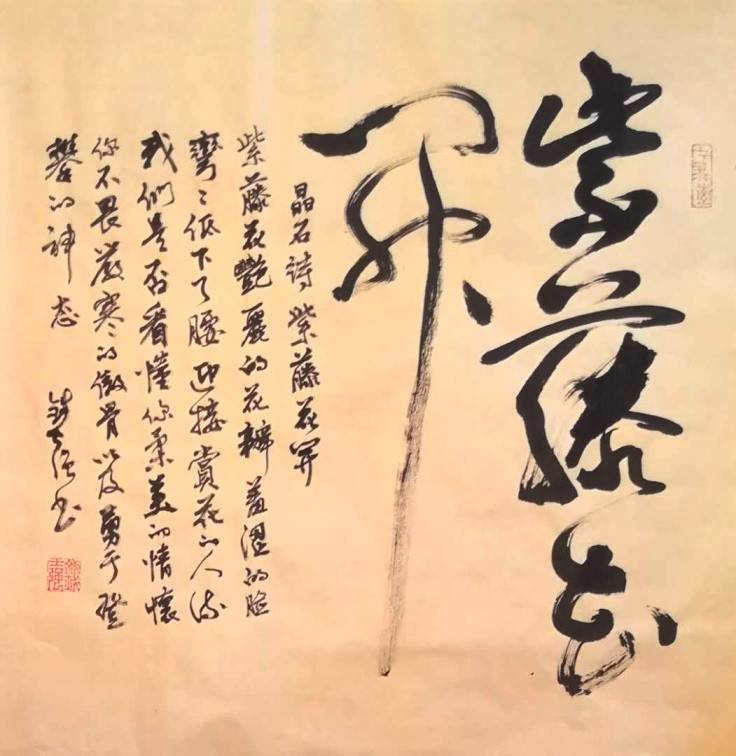 紫藤花
開
晶石詩 紫藤花開
紫藤花艷麗的花瓣羞澀的臉
彎々低下了腰迎接賞花的人流
我們是否看懂你柔美的情懷
你不畏嚴寒的傲骨以及勇于登
攀的神态 书